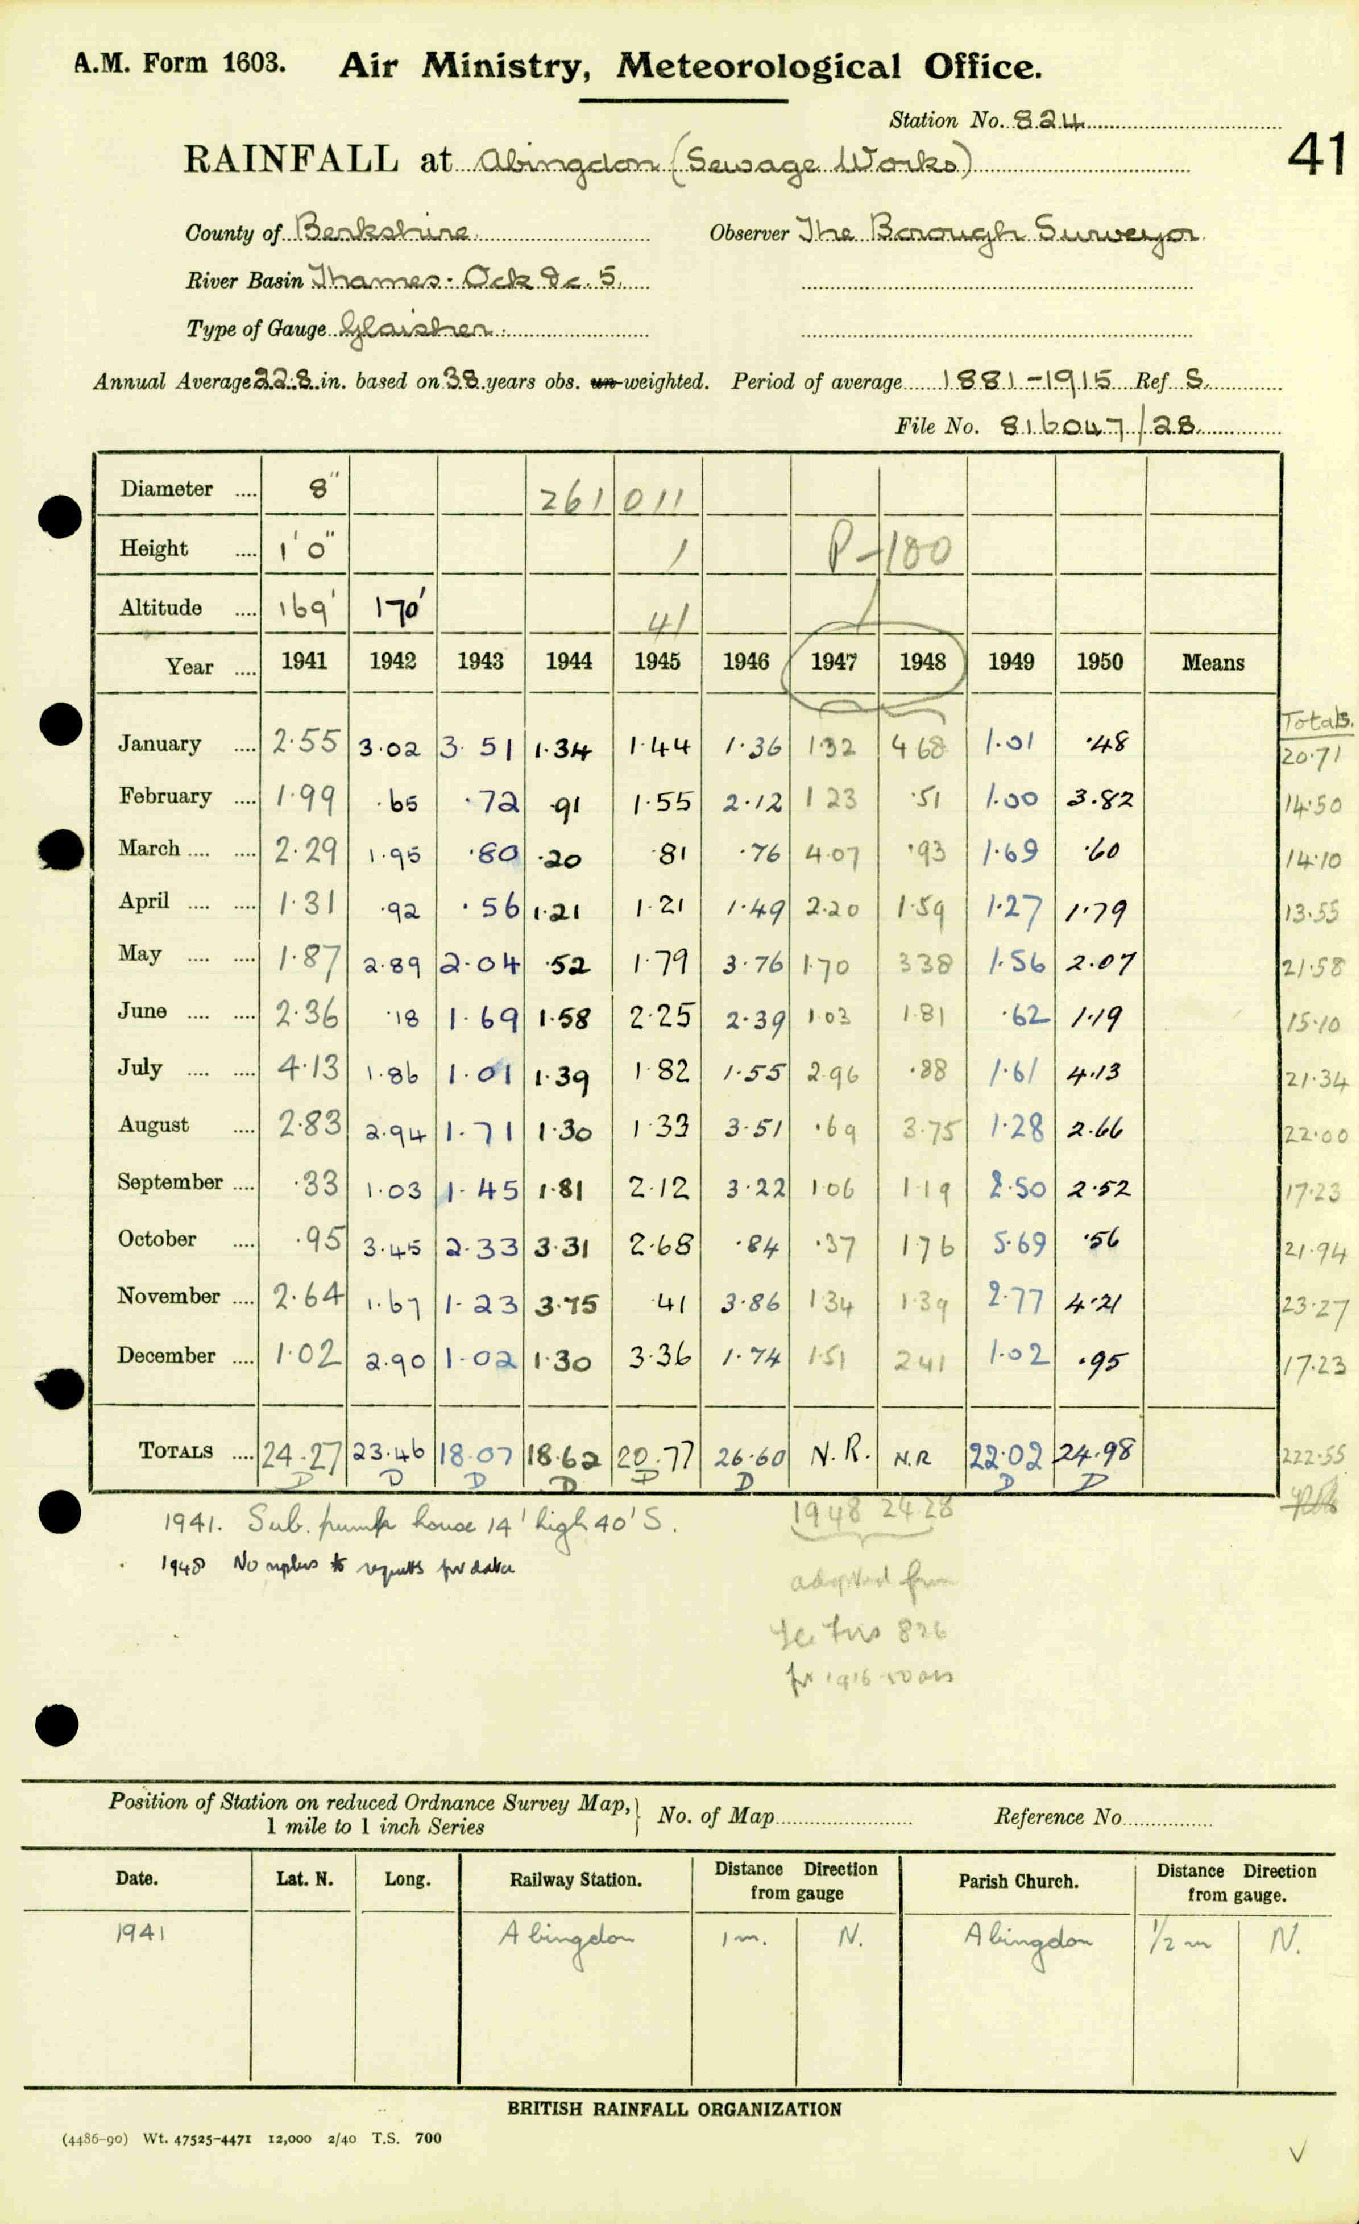 A.M. Form 1603. Air Ministry, Meteorological Office.
Station No. 824
41
RAINFALL at Abingdon (Sewage Works)
County of Berkshire. Observer The Borough Surveyor
River Basin Thames - Ock &c. 5.
Type of Gauge Glaisher.
Annual Average 22.8 in. based on 38 years obs. un-weighted. Period of average 1881-1915 Ref S.
File No. 816047/28
Diameter .... 8" 261 011
Height .... 1' 0" 1 P-100
Altitude .... 169' 170' 41
Year .... 1941 1942 1943 1944 1945 1946 1947 1948 1949 1950 Means
Totals.
January .... 2.55 3.02 3.51 1.34 1.44 1.36 1.32 4.68 1.01 .48 20.71
February .... 1.99 .65 .72 .91 1.55 2.12 1 23 .51 1.00 3.82 14.50
March .... .... 2.29 1.95 .80 .20 .81 .76 4.07 .93 1.69 .60 14.10
April .... .... 1.31 .92 .56 1.21 1.21 1.49 2.20 1.59 1.27 1.79 13.55
May .... .... 1.87 2.89 2.04 .52 1.79 3.76 1.70 3 38 1.56 2.07 21.58
June .... .... 2.36 .18 1.69 1.58 2.25 2.39 1.03 1.81 .62 1.19 15.10
July .... .... 4.13 1.86 1.01 1.39 1.82 1.55 2.96 .88 1.61 4.13 21.34
August .... 2.83 2.94 1.71 1.30 1.33 3.51 .69 3.75 1.28 2.66 22.00
September .... .33 1.03 1.45 1.81 2.12 3.22 1.06 1.19 2.50 2.52 17.23
October .... .95 3.45 2.33 3.31 2.68 .84 .37 1.76 5.69 .56 21.94
November .... 2.64 1.67 1.23 3.75 .41 3.86 1.34 1.39 2.77 4.21 23.27
December .... 1.02 2.90 1.02 1.30 3.36 1.74 1.51 2.41 1.02 .95 17.23
TOTALS .... 24.27 23.46 18.07 18.62 20.77 26.60 N.R. N.R 22.02 24.98 222.55
D D D D D D D D
1941. Sub. pump house 14' high 40' S.
1948 24.28
1948 No replies to requests for data
adopted from
826
for 1916-50 avs
Position of Station on reduced Ordnance Survey Map, 1 mile to 1 inch Series } No. of Map Reference No
Date. Lat. N. Long. Railway Station. Distance Direction from gauge Parish Church. Distance Direction from gauge.
1941 Abingdon 1 m. N. Abingdon 1/2 m N.
BRITISH RAINFALL ORGANIZATION
(4486-90) Wt. 47525-4471 12,000 2/40 T.S. 700